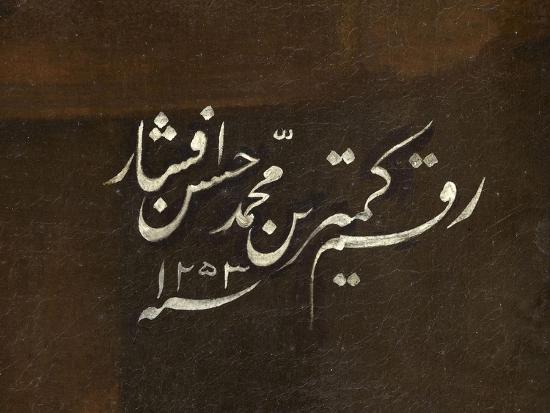 رقم کمترین محمّد حسن افشار
سنه ۱۲۵۳